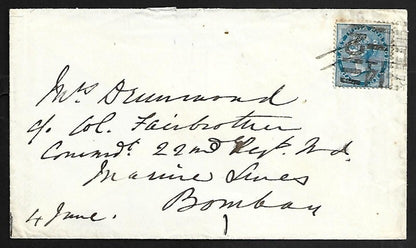 Mrs Drummond
c/o Col. Fairbrother
Commdt. 22nd Regt. N.I.
Marine Lines
Bombay
4 June.